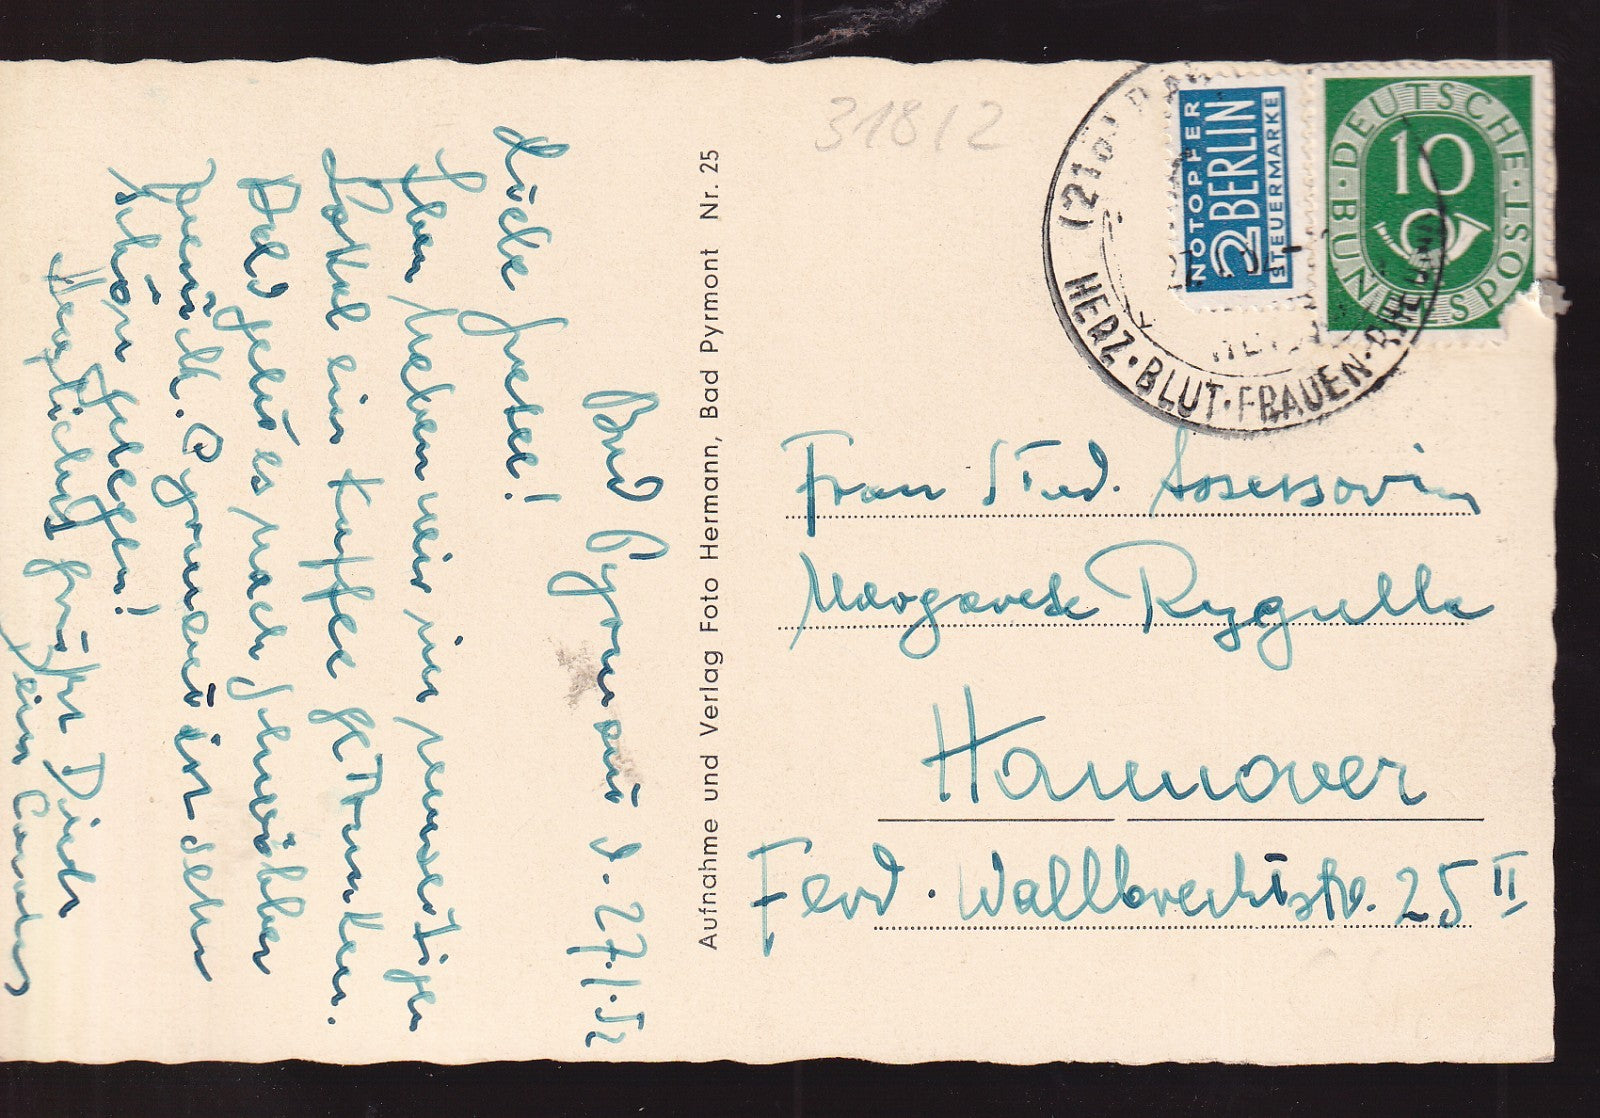 Bad Pyrmont d. 27.1.52
Liebe Gretel!
Eben haben wir im neuartigen
Lokal ein Kaffee getrunken.
Bald geht es nach
zurück. Pyrmont ist sehr
schön gelegen!
Herzlichst grüßt Dich
Dein
Aufnahme und Verlag Foto Hermann, Bad Pyrmont Nr. 25
31812
(21a) BAD
HERZ·BLUT·FRAUEN·RHEUMA
NOTOPFER
2 BERLIN
STEUERMARKE
DEUTSCHE·BUNDESPOST
10
Frau Stud. Assessorin
Margarete Rygulla
Hannover
Ferd. Wallbrechtstr. 25 II